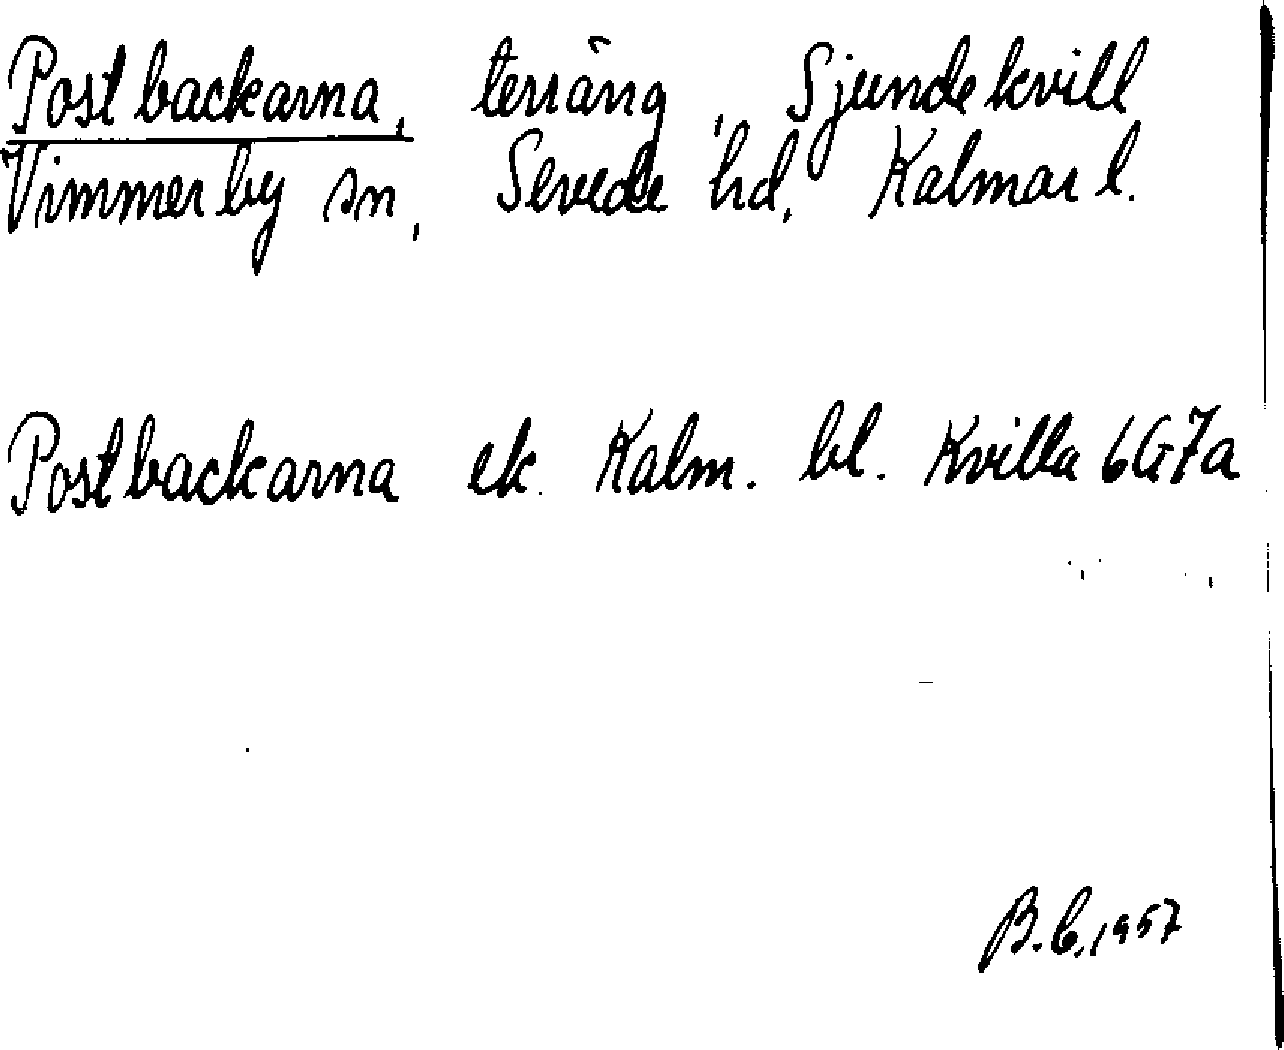 Postbackarna, terräng, Sjundekvill
Vimmerby sn, Sevede hd, Kalmar l.
Postbackarna ek. Kalm. bl. Kvilla 6G7a
B.C. 1957